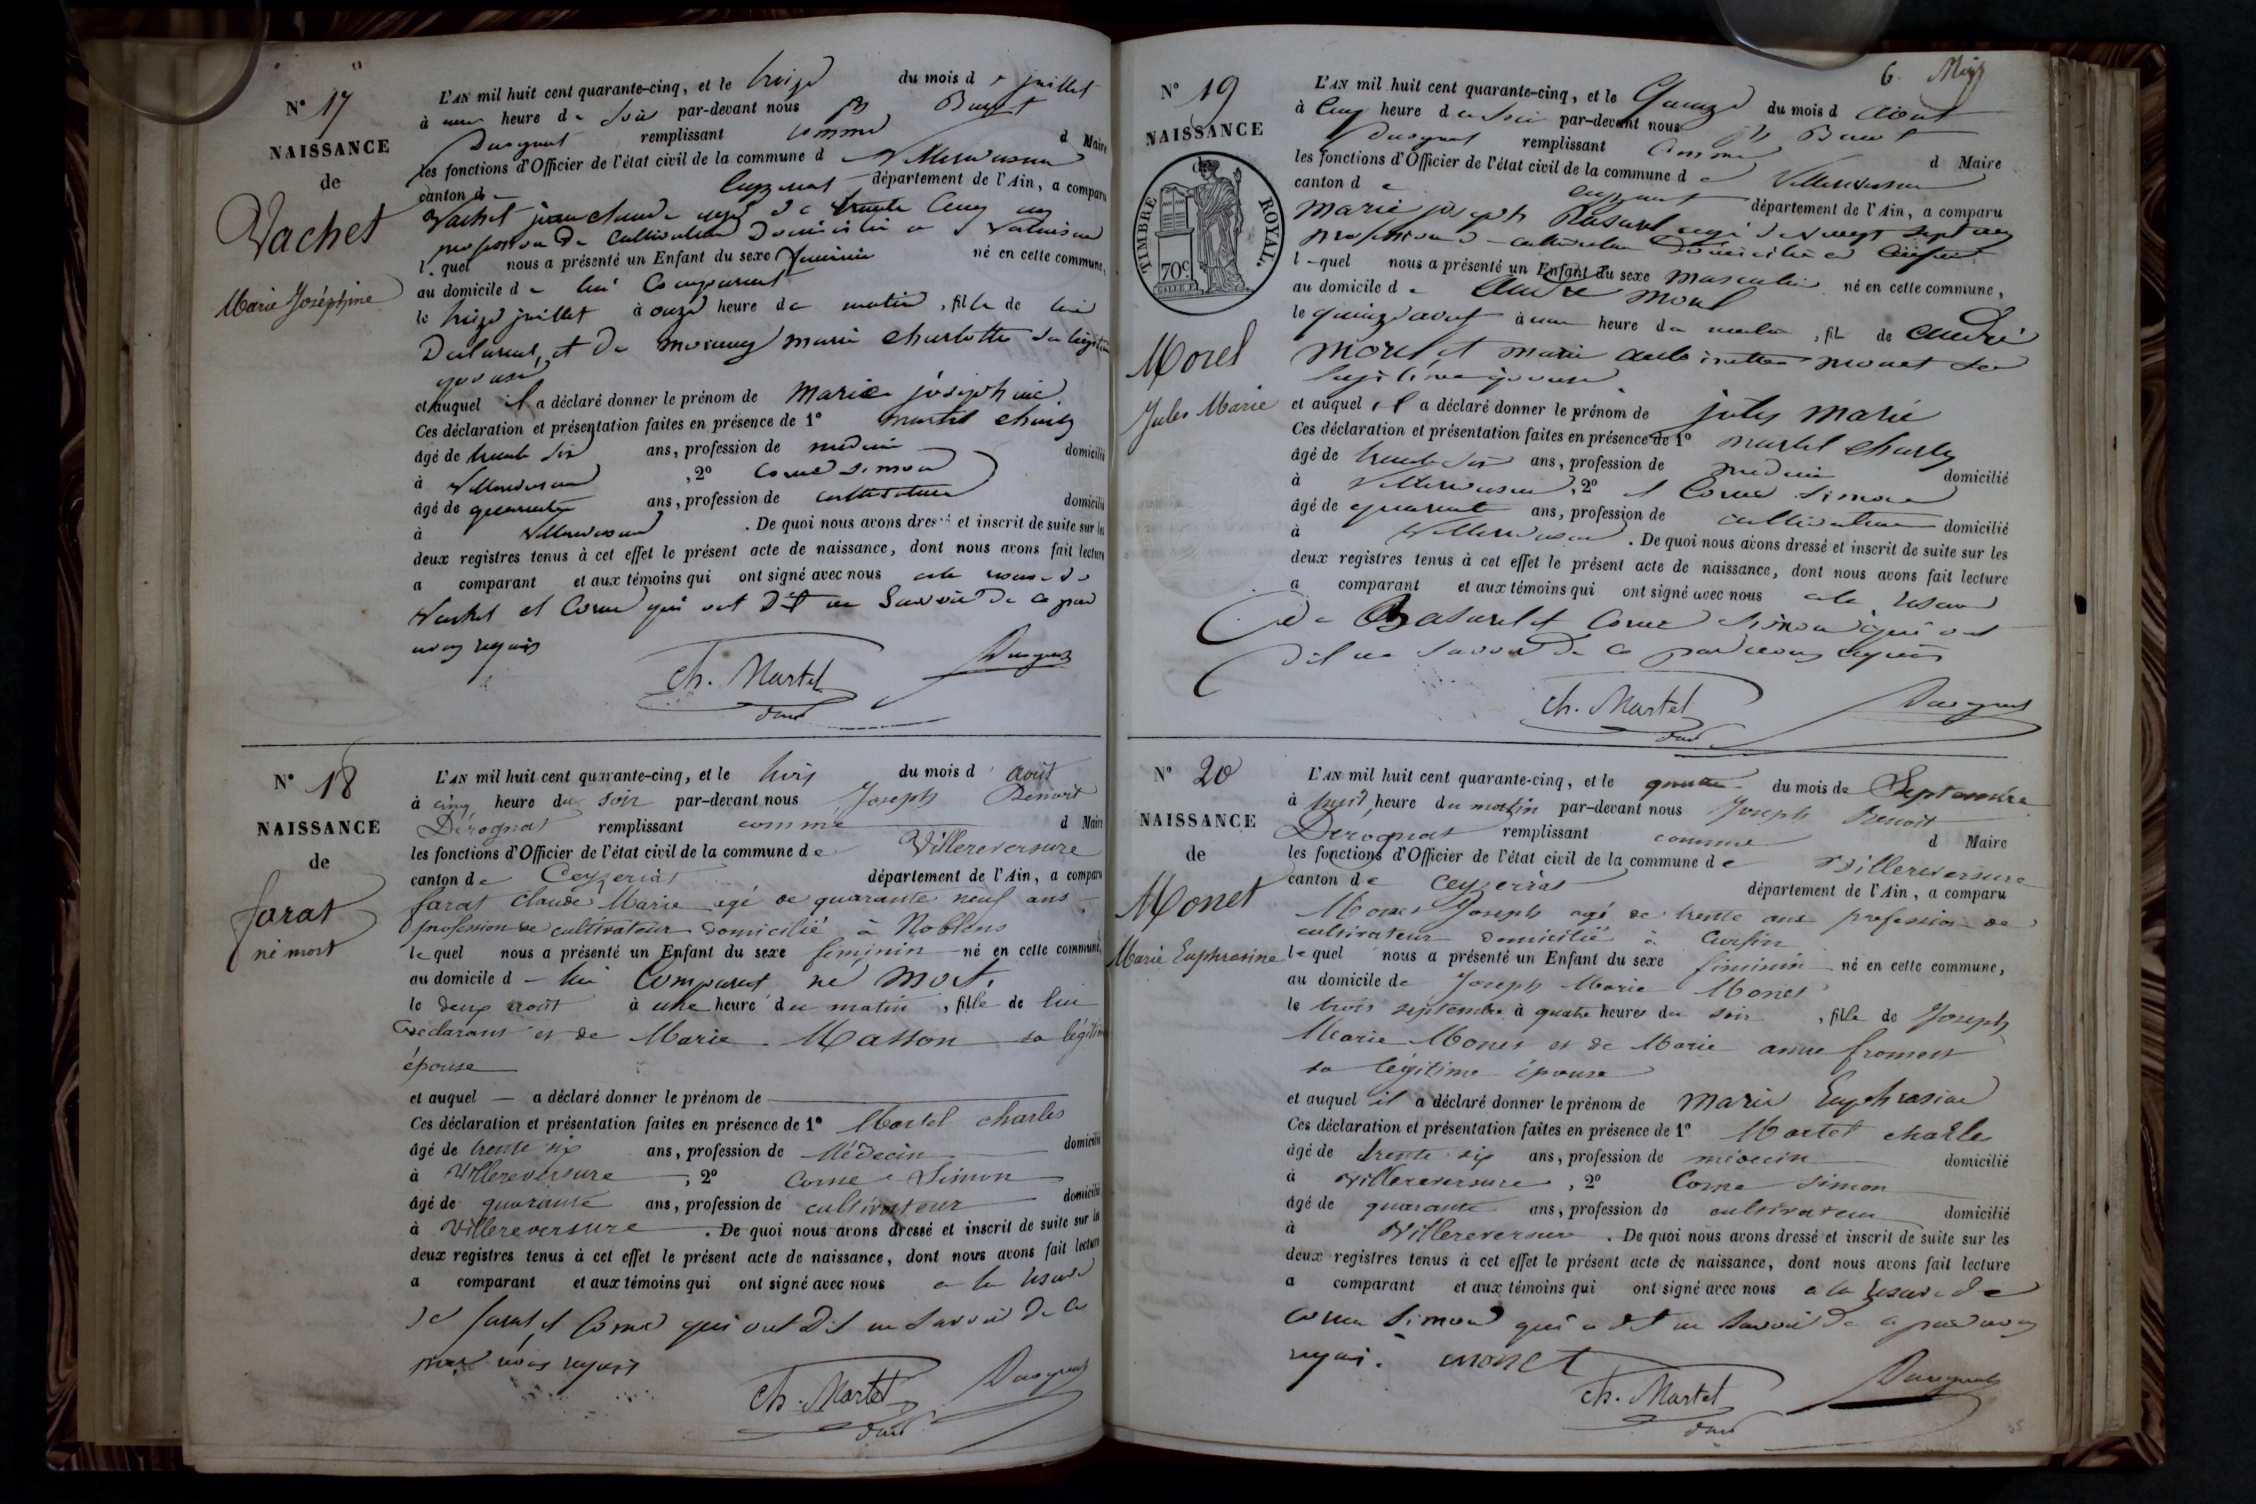 N° 17
NAISSANCE
de
Vachet
Marie Joséphine
L'AN mil huit cent quarante-cinq, et le treize du mois de juillet
à une heure de soir par-devant nous Jh Benoit
remplissant comme d Maire
les fonctions d'Officier de l'état civil de la commune d Villereversure
canton de département de l'Ain, a comparu
Vachet jean claude agé de trente cinq ans
profession de cultivateur Domicilié a
lequel nous a présenté un Enfant du sexe feminin né en cette commune,
au domicile de lui Comparant
le treize juillet à onze heure de matin, fille de lui
Declarant, et de marie charlotte sa légitime
epouse
et auquel il a déclaré donner le prénom de Marie joséphine.
Ces déclaration et présentation faites en présence de 1° martel charles
âgé de trente six ans, profession de medecin domicilié
à Villereversure, 2° Corne Simon
âgé de quarante ans, profession de cultivateur domicilié
à Villereversure. De quoi nous avons dressé et inscrit de suite sur les
deux registres tenus à cet effet le présent acte de naissance, dont nous avons fait lecture
a comparant et aux témoins qui ont signé avec nous a la reserve de
Vachet et Corne qui ont Dit ne Savoir De ce par
nous requis
Ch. Martel
N° 18
NAISSANCE
de
farat
né mort
L'AN mil huit cent quarante-cinq, et le trois du mois d août
à cinq heure du soir par-devant nous Joseph Benoit
Dérognat remplissant comme d Maire
les fonctions d'Officier de l'état civil de la commune de Villereversure
canton de Ceyzeriat département de l'Ain, a comparu
farat Claude Marie agé de quarante neuf ans
profession de cultivateur domicilié à Noblens
lequel nous a présenté un Enfant du sexe féminin né en cette commune,
au domicile d lui Comparant né mort.
le deux août à une heure du matin, fille de lui
Déclarant et de Marie Masson sa légitime
épouse
et auquel — a déclaré donner le prénom de
Ces déclaration et présentation faites en présence de 1° Martel charles
âgé de trente six ans, profession de Médecin domicilié
à Villereversure, 2° Corne Simon
âgé de quarante ans, profession de cultivateur domicilié
à Villereversure. De quoi nous avons dressé et inscrit de suite sur les
deux registres tenus à cet effet le présent acte de naissance, dont nous avons fait lecture
a comparant et aux témoins qui ont signé avec nous a la reserve
de farat et Corne qui ont Dit ne Savoir De ce
par nous requis
Ch. Martel
6.
N° 19
NAISSANCE
TIMBRE ROYAL.
70c
Morel
Jules Marie
L'AN mil huit cent quarante-cinq, et le Quinze du mois d Aout
à Cinq heure du Soir par-devant nous Jh Benoit
remplissant Comme d Maire
les fonctions d'Officier de l'état civil de la commune de Villereversure
canton de département de l'Ain, a comparu
Marie joseph Rasurel agé de vingt sept ans
profession de cultivateur Domicilié a Curfin
lequel nous a présenté un Enfant du sexe masculin né en cette commune,
au domicile de André Morel
le quinze aout à une heure du matin, fil de André
Morel et marie antoinette monet sa
legitime epouse
et auquel il a déclaré donner le prénom de jules marie
Ces déclaration et présentation faites en présence de 1° martel charles
âgé de trente six ans, profession de medecin domicilié
à Villereversure, 2° et Corne Simon
âgé de quarante ans, profession de cultivateur domicilié
à Villereversure. De quoi nous avons dressé et inscrit de suite sur les
deux registres tenus à cet effet le présent acte de naissance, dont nous avons fait lecture
a comparant et aux témoins qui ont signé avec nous a la reserve
de Rasurel et Corne Simon qui ont
dit ne Savoir De ce par nous requis
Ch. Martel
N° 20
NAISSANCE
de
Monet
Marie Euphrosine
L'AN mil huit cent quarante-cinq, et le quatre du mois de Septembre
à huit heure du matin par-devant nous Joseph Benoit
Derognat remplissant comme d Maire
les fonctions d'Officier de l'état civil de la commune de Villereversure
canton de Ceyzeriat département de l'Ain, a comparu
Monet Joseph agé de trente ans profession de
cultivateur domicilié à Curfin
lequel nous a présenté un Enfant du sexe féminin né en cette commune,
au domicile de Joseph Marie Monet
le trois septembre à quatre heures du soir, fille de Joseph
Marie Monet et de Marie anne froment
sa légitime épouse
et auquel il a déclaré donner le prénom de Marie Euphrosine
Ces déclaration et présentation faites en présence de 1° Martel charles
âgé de trente six ans, profession de médecin domicilié
à Villereversure, 2° Corne Simon
âgé de quarante ans, profession de cultivateur domicilié
à Villereversure. De quoi nous avons dressé et inscrit de suite sur les
deux registres tenus à cet effet le présent acte de naissance, dont nous avons fait lecture
a comparant et aux témoins qui ont signé avec nous a la reserve de
Corne Simon qui a dit ne Savoir De ce par nous
requis. monet
Ch. Martel